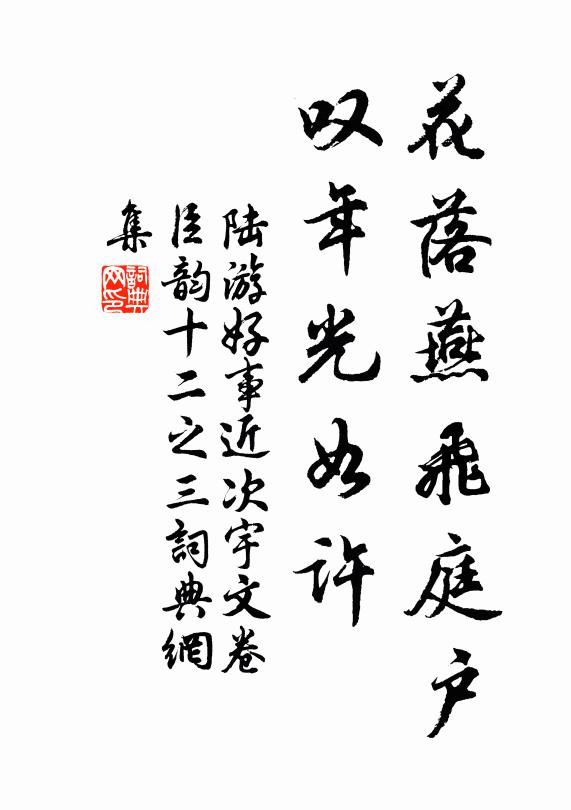 花落燕飛庭户
叹年光如许
陆游好事近次宇文卷
臣韵十二之三詞典網
集
詞典
网印